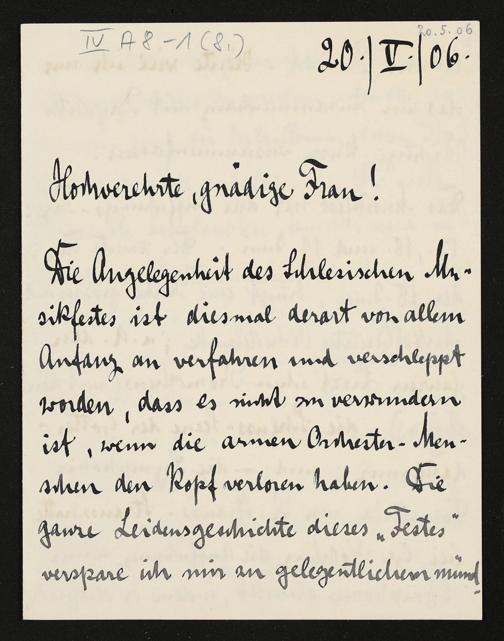 IV A 8 – 1 (8.)
20.5.06
20./V./06.
Hochverehrte, gnädige Frau!
Die Angelegenheit des Schlesischen Mu-
sikfestes ist diesmal derart von allem
Anfang an verfahren und verschleppt
worden, dass es nicht zu verwundern
ist, wenn die armen Orchester-Men-
schen den Kopf verloren haben. Die
ganze Leidensgeschichte dieses „Festes"
verspare ich mir zu gelegentlichem münd-